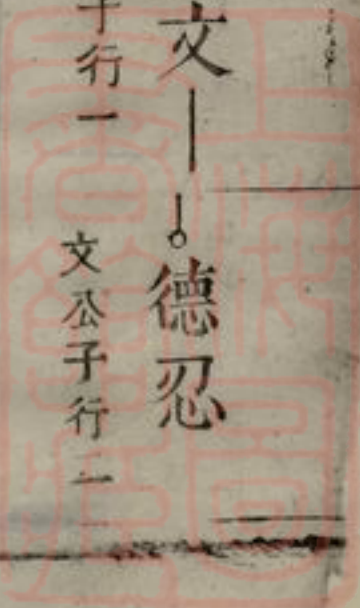 文
德忍
子行一
文公子行二